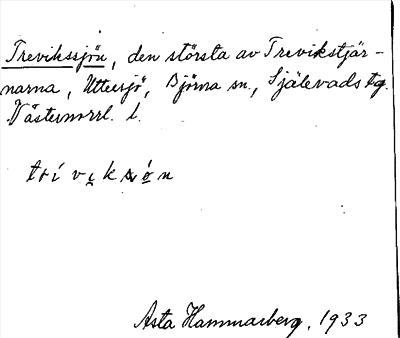 Trevikssjön, den största av Trevikstjär-
narna, Uttersjö, Björna sn., Själevads tg.
Västernorrl. l.
Asta Hammarberg, 1933